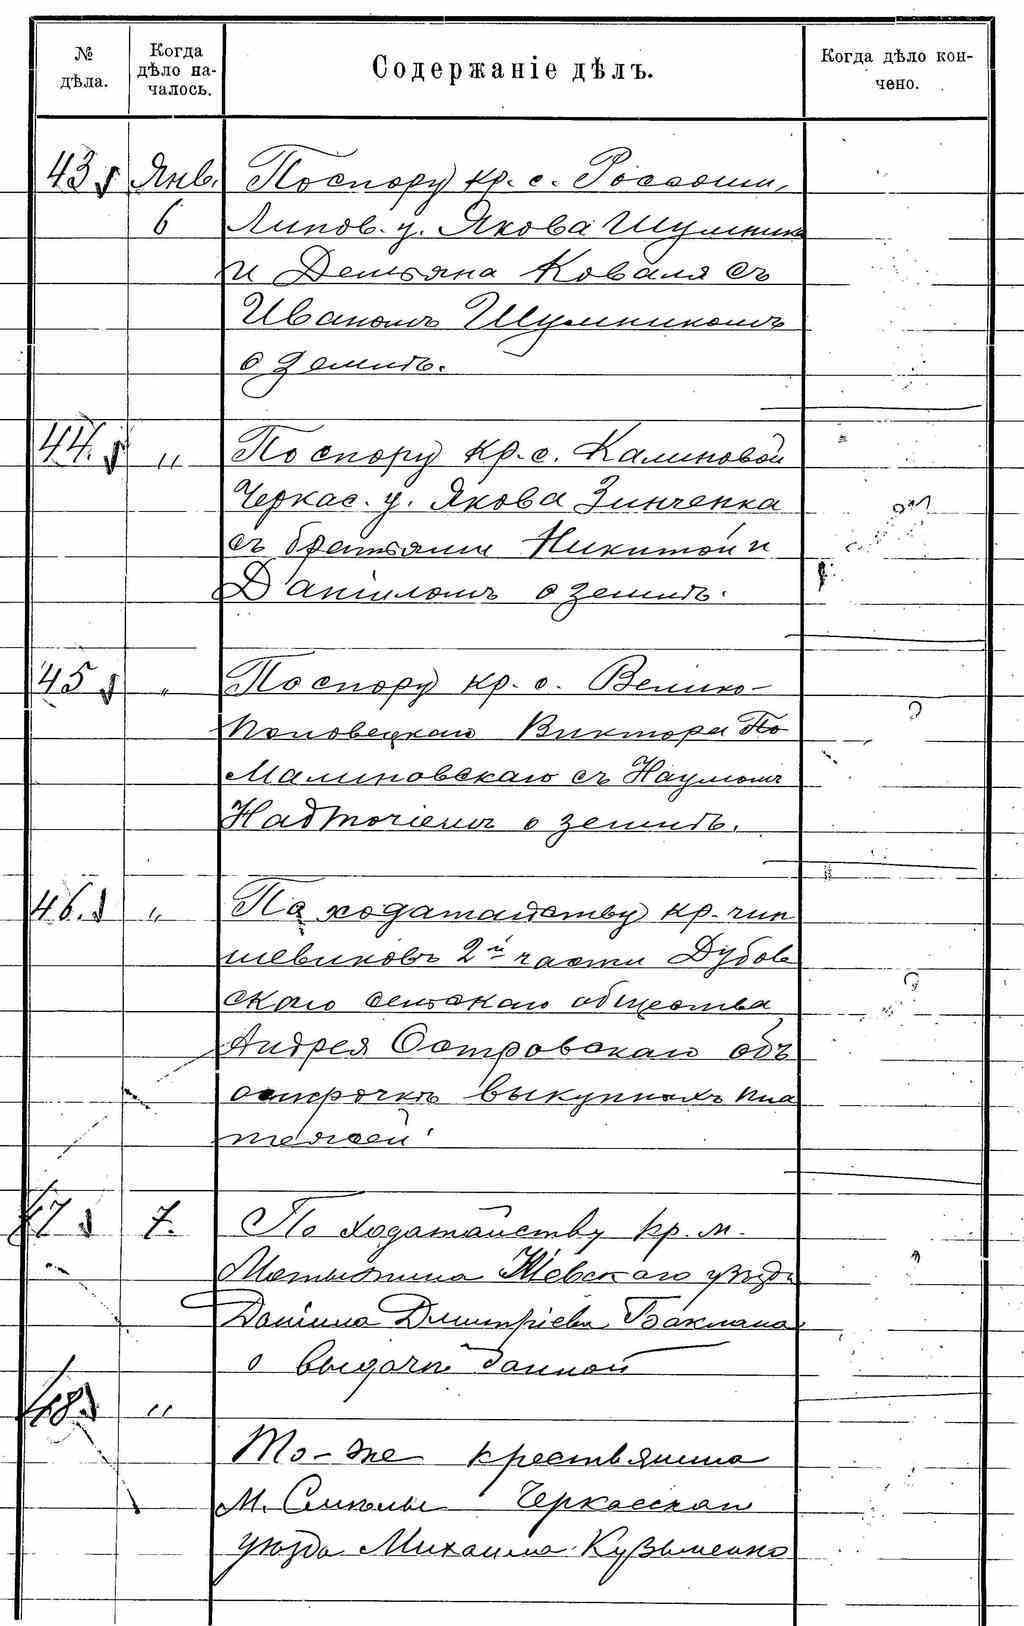 № дѣла.
Когда дѣло началось.
Содержаніе дѣлъ.
Когда дѣло кончено.
43 Янв. По спору кр. с. Россоши,
6 Липов. у. Якова Шумника
и Демьяна Коваля съ
Иваномъ Шумникомъ
о землѣ.
44. " По спору кр. с. Калиновой
Черкас. у. Якова Зинченка
съ братьями Никитой и
Даніиломъ о землѣ.
45 " По спору кр. с. Велико-
Половецкаго Виктора По
Малиновскаго съ Наумомъ
Надточіемъ о землѣ.
46. " По ходатайству кр. чин
шевиковъ 2й части Дубов
скаго сельскаго общества
Андрея Островскаго объ
отсрочкѣ выкупныхъ пла
тежей.
47 7. По ходатайству кр. м.
Мотыжина Кіевскаго уѣзда
Даніила Дмитріева Баклана
о выдачѣ данной
48. "
То-же крестьянина
м. Смѣлы Черкасскаго
уѣзда Михаила Кузьменко